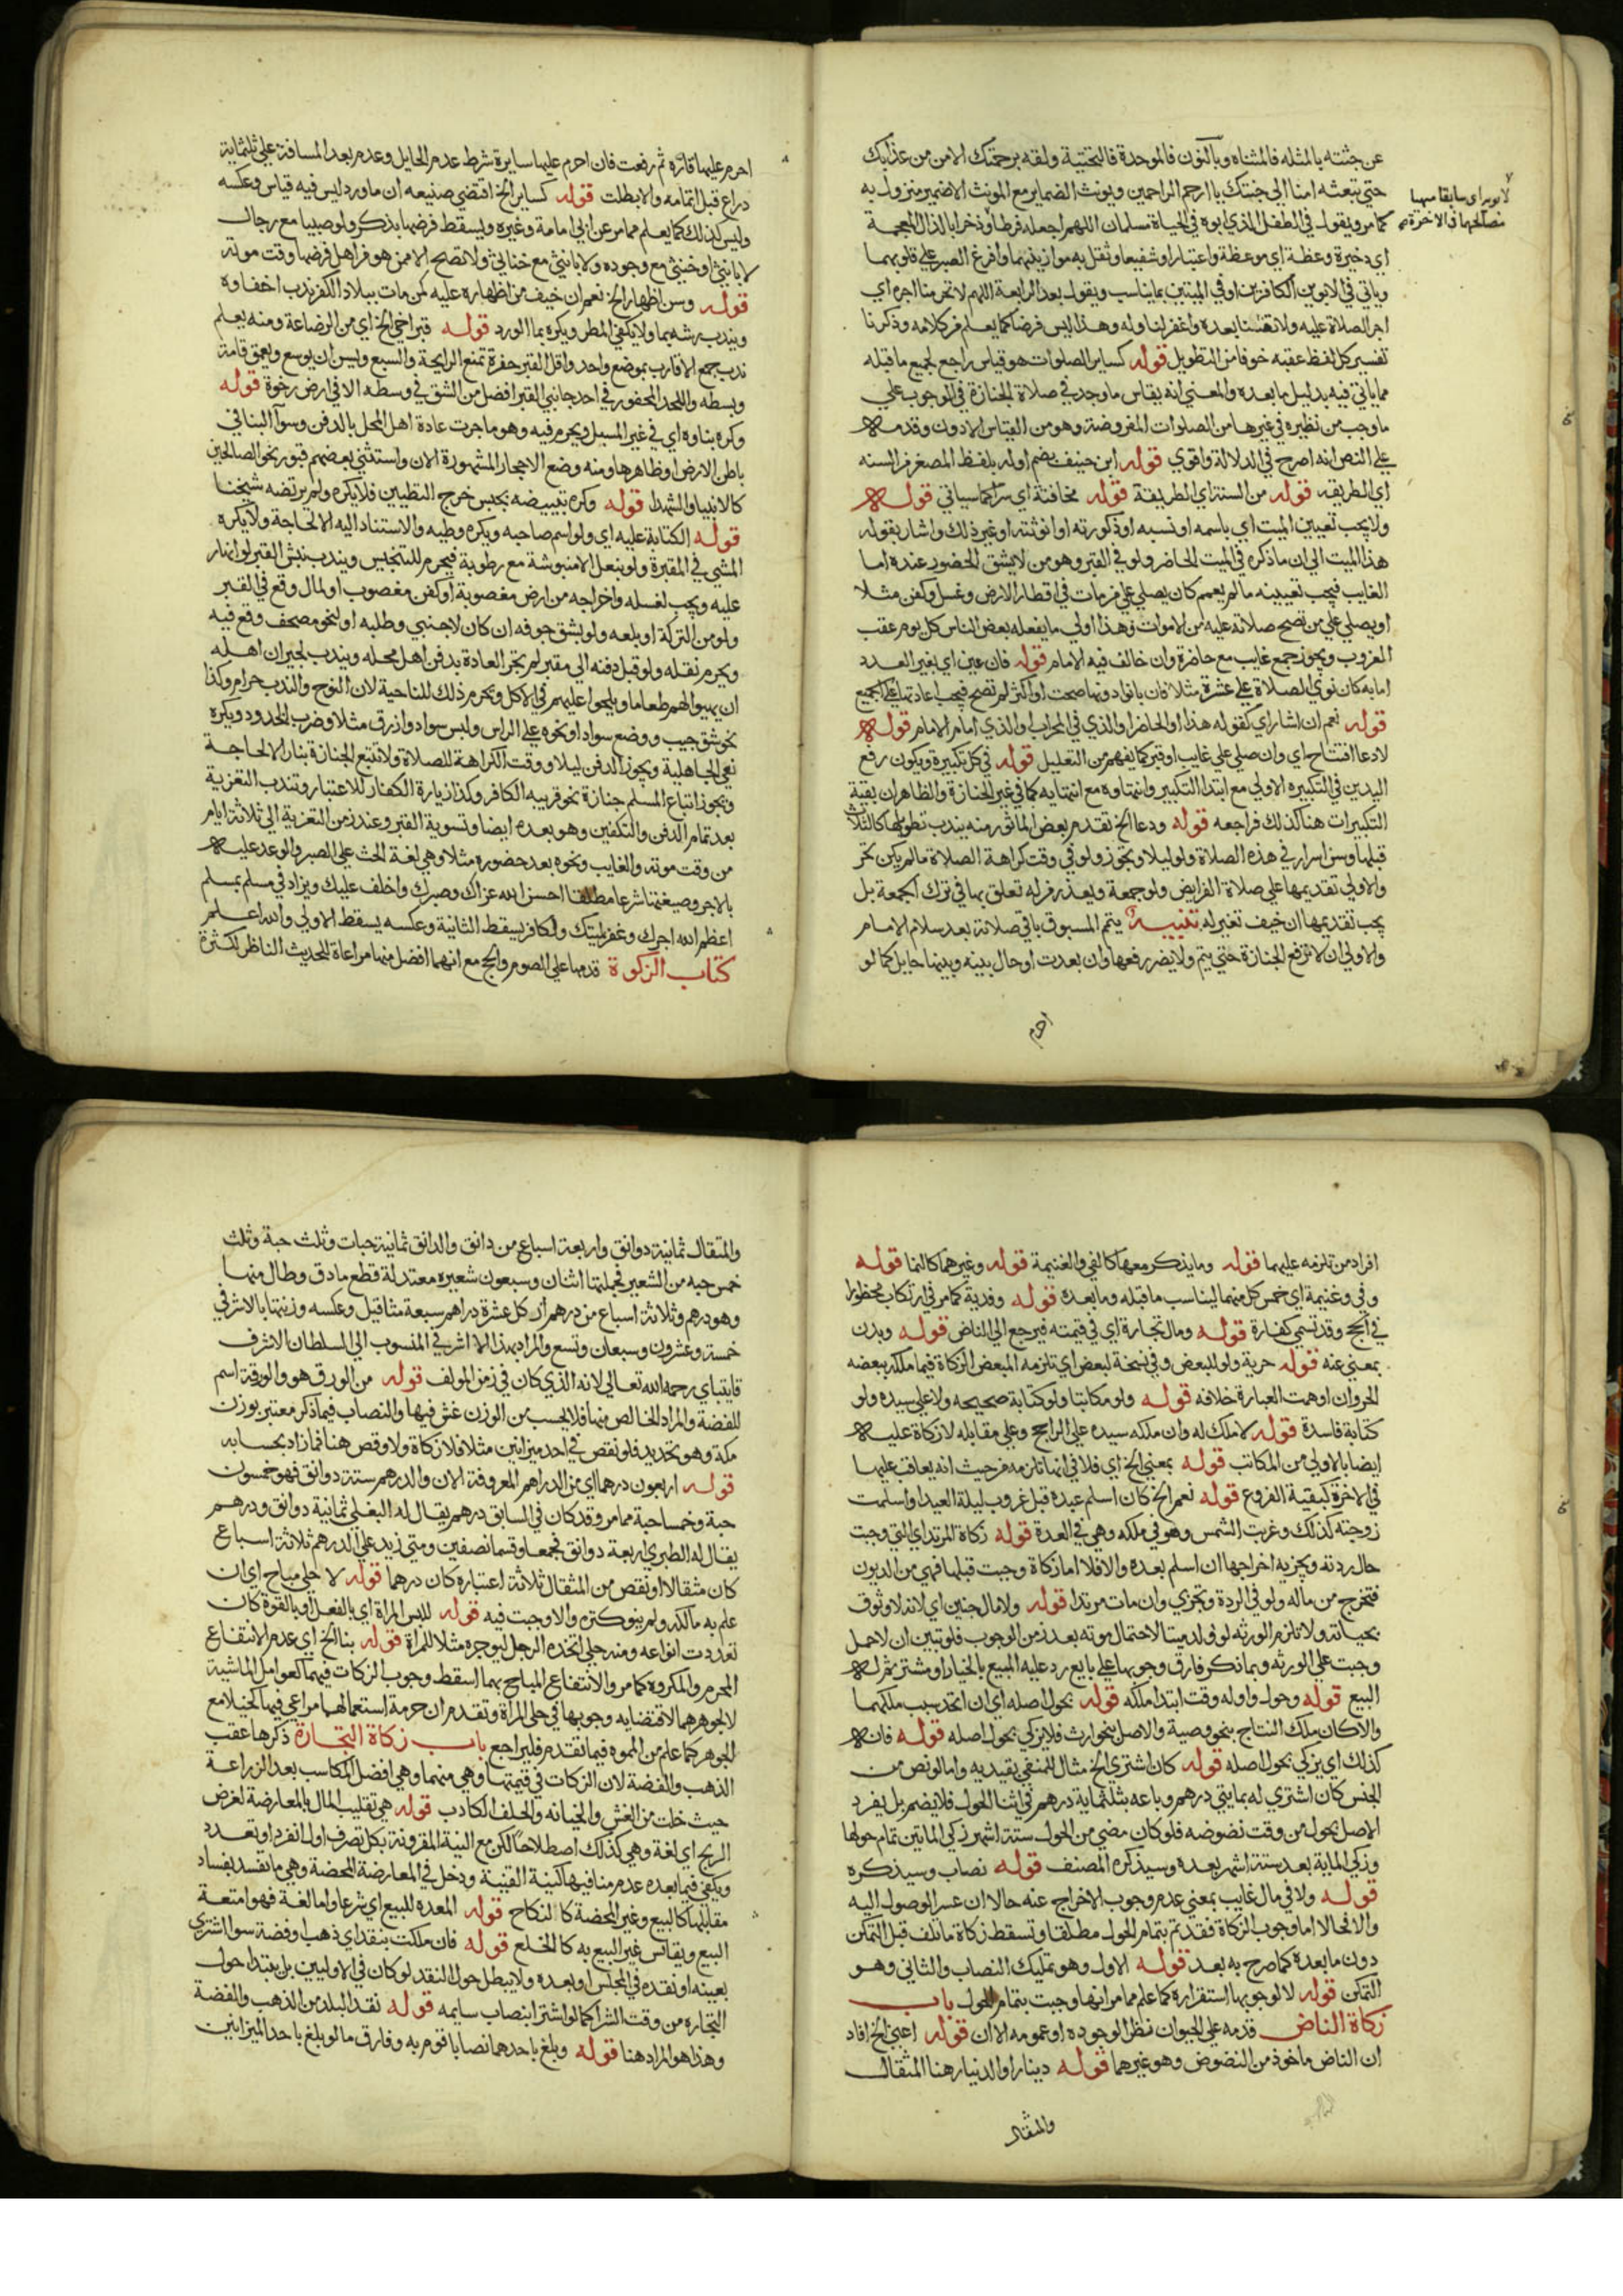 عن جثته بالمثلثه فالمثناه وبالنون فالموحدة فالتحتية ولقه برحمتك الامن من عذابك
حتي تبعثه امنا الي جنتك يا ارحم الراحمين ويونث الضماير مع المونث الا ضمير منزول به
كما مر ويقول في الطفل الذي ابوه في الحياة مسلمان اللهم اجعله فرطا وذخرا بالذال المعجمة
لابويه اي سابقا مهيا
مصالحهما في الاخرة
اي ذخيرة وعظة اي موعظة واعتبارا وشفيعا وثقل به موازينهما وافرغ الصبر علي قلوبهما
وياتي في الابوين الكافرين او في الميتين بما يناسب ويقول بعد الرابعة اللهم لا تحرمنا اجره اي
اجر الصلاة عليه ولا تفتنا بعده واغفر لنا وله وهذا ليس فرضا كما يعلم من كلامه وذكرنا
تفسير كل لفظ عقبه خوفا من التطويل قوله كساير الصلوات هو قياس راجع لجميع ما قبله
مما ياتي فيه بدليل ما بعده والمعني انه يقاس ما وجد في صلاة الجنازة في الوجوب علي
ما وجب من نظيره في غيرها من الصلوات المفروضة وهو من القياس الادون وقدمه
علي النص انه اصرح في الدلالة واقوي قوله ابن حنيف بضم اوله بلفظ المصغر قوله السنه
اي الطريقه قوله من السنة اي الطريقة قوله مخافتة اي سرا كما سياتي قوله
ولا يجب تعيين الميت اي باسمه او نسبه او ذكورته او انوثته او غير ذلك واشار بقوله
هذا الميت الي ان ما ذكره في الميت الحاضر ولو في القبر وهو من لا يشق الحضور عنده اما
الغايب فيجب تعيينه ما لم يعمم كان يصلي علي من مات في اقطار الارض وغسل وكفن مثلا
او يصلي علي من تصح صلاته عليه من الاموات وهذا اولي ما يفعله بعض الناس كل يوم عقب
الغروب ويجوز جمع غايب مع حاضرة وان خالف فيه الامام قوله فان عين اي بغير العدد
اما به كان نوي الصلاة علي عشرة مثلا فان بانوا دونها صحت او اكثر لم تصح فيجب اعادتها علي الجميع
قوله نعم ان اشار اي كقوله هذا او الحاضر او الذي في المحراب او الذي امام الامام قوله
لا دعا افتتاح اي وان صلي علي غايب او قبر كما يفهم من التعليل قوله في كل تكبيرة ويكون رفع
اليدين في التكبيره الاولي مع ابتدا التكبير وانتهاوه مع انتهايه كما في غير الجنازة والظاهر ان بقية
التكبيرات هنا كذلك فراجعه قوله ودعا الخ تقدم بعض الماثور منه يندب تطويلها كالثلاث
قبلها وسن اسرار في هذه الصلاة ولو ليلا وتجوز ولو في وقت كراهة الصلاة ما لم يكن تحر
والاولي تقديمها علي صلاة الفرايض ولو جمعة ويعذر من له تعلق بها في ترك الجمعة بل
يجب تقديمها ان خيف تغير له تنبيه يتم المسبوق باقي صلاته بعد سلام الامام
والاولي ان لا ترفع الجنازة حتي يتم ولا يضر رفعها وان بعدت او حال بينه وبينها حايل كما لو
احرم
احرم عليها قارة ثم رفعت فان احرم عليها سايرة شرط عدم الحايل وعدم بعد المسافة علي ثلثماية
ذراع قبل اتمامه والا بطلت قوله كساير الخ اقتضي صنيعه ان ما ورد ليس فيه قياس وعكسه
وليس كذلك كما يعلم مما مر عن ابي امامة وغيره ويسقط فرضها بذكر ولو صبيا مع رجال
لا بانثي او خنثي مع وجوده ولا بانثي مع خناثي ولا تصح الا ممن هو من اهل فرضها وقت موته
قوله وسن اظهار الخ نعم ان خيف من اظهاره عليه كمن مات ببلاد الكفر ندب اخفاوه
ويندب رشه بما ولا يكفي المطر ويكره بما الورد قوله قبر اخي الخ اي من الرضاعة ومنه يعلم
ندب جمع الاقارب بموضع واحد واقل القبر حفرة تمنع الرايحة والسبع ويسن ان يوسع ويعمق قامة
وبسطه واللحد المحفور في احد جانبي القبر افضل من الشق في وسطه الا في ارض رخوة قوله
وكره بناوه اي في غير المسبل ويحرم فيه وهو ما جرت عادة اهل المحل بالدفن وسوا البنا في
باطن الارض او ظاهرها ومنه وضع الاحجار المشهورة الان واستثني بعضهم قبور نحو الصالحين
كالانبيا والشهدا قوله وكره تبييضه بجبس خرج التطيين فلا يكره ولم يرتضه شيخنا
قوله الكتابة عليه اي ولو اسم صاحبه ويكره وطيه والاستناد اليه الا لحاجة ولا يكره
المشي في المقبرة ولو بنعل الا منبوشة مع رطوبة فيحرم للتنجيس ويندب نبش القبر لو انهار
عليه ويجب لغسله واخراجه من ارض مغصوبة او كفن مغصوب او لمال وقع في القبر
ولو من التركة او بلعه ولو بشق جوفه ان كان لاجنبي وطلبه او لنحو مصحف وقع فيه
ويحرم نقله ولو قبل دفنه الي مقبر لم تجر العادة بدفن اهل محله ويندب لجيران اهله
ان يهيوا لهم طعاما ويلحوا عليهم في الاكل ويحرم ذلك للناحية لان النوح والندب حرام وكذا
نحو شق جيب ووضع سواد او نحوه علي الراس ولبس سواد وازرق مثلا وضرب الخدود ويكره
نعي الجاهلية ويجوز الدفن ليلا ووقت الكراهة للصلاة ولا تتبع الجنازة بنار الا لحاجة
ويجوز اتباع المسلم جنازة نحو قريبه الكافر وكذا زيارة الكفار للاعتبار وتندب التعزية
بعد تمام الدفن والتكفين وهو بعده ايضا وتسوية القبر وعند زمن التعزية الي ثلاثة ايام
من وقت موته والغايب ونحوه بعد حضوره مثلا وهي لغة الحث علي الصبر والوعد عليه
بالاجر وصيغتها شرعا مطلقا احسن الله عزاك وصبرك واخلف عليك ويزاد في مسلم بمسلم
اعظم الله اجرك وغفر لميتك ولكافر يسقط الثانية وعكسه يسقط الاولي والله اعلم
كتاب الزكوة قدمها علي الصوم والحج مع انهما افضل منها مراعاة للحديث الناظر لكثرة
افراد من تلزمه عليهما قوله وما يذكر معها كالفي والغنيمة قوله وغيرهما كالنما قوله
وفي وغنيمة اي خمس كل منهما ليناسب ما قبله وما بعده قوله وفدية كما مر في ارتكاب محظور
في الحج وقد تسمي كفارة قوله ومال تجارة اي في قيمته فيرجع الي الناض قوله وبدن
بمعني عنه قوله حرية ولو لبعض وفي نسخة لبعض اي تلزمه المبعض الزكاة فيما ملكه ببعضه
الحر وان اوهمت العبارة خلافه قوله ولو مكاتبا ولو كتابة صحيحه ولا علي سيده ولو
كتابة فاسدة قوله لا ملك له وان ملكه سيده علي الراجح وعلي مقابله لا زكاة عليه
ايضا بالاولي من المكاتب قوله بمعني الخ اي فلا في انها تلزمه من حيث انه يعاقب عليها
في الاخرة كبقية الفروع قوله نعم الخ كان اسلم عبده قبل غروب ليلة العيد او اسلمت
زوجته كذلك وغربت الشمس وهو في ملكه وهي في العدة قوله زكاة المرتد اي التي وجبت
حال ردته ويجزيه اخراجها ان اسلم بعده والا فلا اما زكاة وجبت قبلها فهي من الديون
فتخرج من ماله ولو في الردة وتجزي وان مات مرتدا قوله ولا مال جنين اي لانه لا وثوق
بحياته ولا تلزم الورثه لو ولد ميتا لاحتمال موته بعد زمن الوجوب فلو تبين ان لا حمل
وجبت علي الورثه وبما ذكر فارق وجوبها علي بايع رد عليه المبيع بالخيار او مشتر تم له
البيع قوله وحول واوله وقت ابتدا ملكه قوله بحول اصله اي ان اتحد سبب ملكهما
والا كان ملك النتاج بنحو وصية والاصل بنحو ارث فلا يزكي بحول اصله قوله فانه
كذلك اي يزكي بحول اصله قوله كان اشتري الخ مثال للمنفي بقيديه واما لو نض من
الجنس كان اشتري له بمايتي درهم وباعه بثلثماية درهم في اثنا الحول فلا يضم بل يفرد
الاصل بحول من وقت نضوضه فلو كان مضي من الحول ستة اشهر زكي المايتين تمام حولها
وزكي الماية بعد ستة اشهر بعده وسيذكره المصنف قوله نصاب وسيذكره
قوله ولا في مال غايب بمعني عدم وجوب الاخراج عنه حالا ان عسر الوصول اليه
والا فحالا اما وجوب الزكاة فقد تم بتمام الحول مطلقا وتسقط زكاة ما تلف قبل التمكن
دون ما بعده كما صرح به بعد قوله الاول وهو تمليك النصاب والثاني وهو
التمكن قوله لا لوجوبها استقراره كما علم مما مر انها وجبت بتمام الحول باب
زكاة الناض قدمه علي الحيوان نظرا لوجوده او عمومه الان قوله اعني الخ افاد
ان الناض ماخوذ من النضوض وهو غيرهما قوله دينارا والدينار هنا المثقال
والمثقال
والمثقال ثمانية دوانق واربعة اسباع من دانق والدانق ثمانية حبات وثلث حبة وثلث
خمس حبه من الشعير فجملتها اثنان وسبعون شعيره معتدلة قطع ما دق وطال منها
وهو درهم وثلاثة اسباع من درهم اذ كل عشرة دراهم سبعة مثاقيل وعكسه وزنتها بالاشرفي
خمسة وعشرون وسبعان وتسع والمراد بهذا الاشرفي المنسوب الي السلطان الاشرف
قايتباي رحمه الله تعالي لانه الذي كان في زمن المولف قوله من الورق هو والورقة اسم
للفضة والمراد الخالص منها فلا يحسب من الوزن غش فيها والنصاب فيما ذكر معتبر بوزن
مكة وهو تحديد فلو نقص في احد ميزانين مثلا فلا زكاة ولا وقص هنا فما زاد بحسابه
قوله اربعون درهما اي من الدراهم المعروفة الان والدرهم ستة دوانق فهو خمسون
حبة وخمسا حبة مما مر وقد كان في السابق درهم يقال له البغلي ثمانية دوانق ودرهم
يقال له الطبري اربعة دوانق فجمعا وقسما نصفين ومتي زيد علي الدرهم ثلاثة اسباع
كان مثقالا او نقص من المثقال ثلاثة اعشاره كان درهما قوله لا حلي مباح اي ان
علم به مالكه ولم ينو كنزه والا وجبت فيه قوله للبس المراة اي بالفعل او بالقوة كان
تعددت انواعه ومنه حلي اتخذه الرجل ليوجره مثلا للمراة قوله بنا الخ اي عدم الانتفاع
المحرم والمكروه كما مر والانتفاع المباح بهما اسقط وجوب الزكات فيهما كعوامل الماشية
لا لجوهرهما لاقتضايه وجوبها في حلي المراة وتقدم ان حرمة استعمالهما مراعي فيها الخيلا مع
الجوهر كما علم من المموه فيما تقدم فليراجع باب زكاة التجارة ذكرها عقب
الذهب والفضة لان الزكات في قيمتها وهي منهما وهي افضل المكاسب بعد الزراعة
حيث خلت من الغش والخيانه والحلف الكاذب قوله هي تقليب المال بالمعارضة لغرض
الربح اي لغة وهي كذلك اصطلاحا لكن مع النية المقرونة بكل تصرف اول انفرد او تعدد
ويكفي فيما بعده عدم منافيها كنية القنية ودخل في المعارضة المحضة وهي ما تفسد بفساد
مقابلها كالبيع وغير المحضة كالنكاح قوله المعدة للبيع اي شرعا واما لغة فهو امتعة
البيع ويقاس غير البيع به كالخلع قوله فان ملكت بنقد اي ذهب او فضة سوا اشتري
بعينه او نقده في المجلس او بعده ولا يبطل حول النقد لو كان في الاوليين بل يبتدا حول
التجاره من وقت الشرا كما لو اشترا بنصاب سايمه قوله نقد البلد من الذهب والفضة
وهذا هو المراد هنا قوله وبلغ باحدهما نصابا قوم به وفارق ما لو بلغ باحد الميزانين